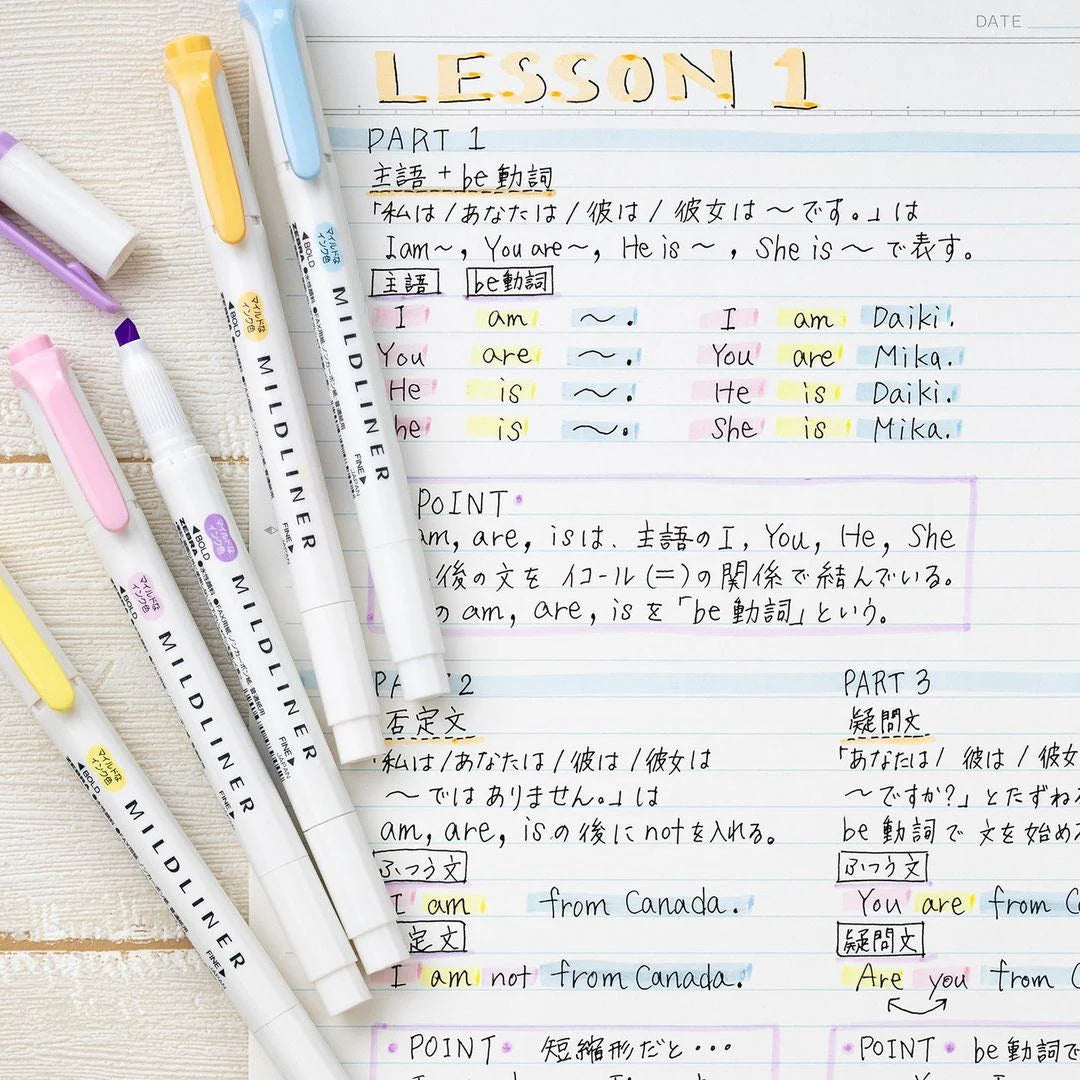 DATE
LESSON 1
PART 1
主語 + be動詞
「私は/あなたは/彼は/彼女は～です。」は
I am～, You are～, He is～, She is～で表す。
主語 be動詞
I am ～. I am Daiki.
You are ～. You are Mika.
He is ～. He is Daiki.
he is ～. She is Mika.
POINT
am, are, isは、主語のI, You, He, She
後の文を イコール(=)の関係で結んでいる。
の am, are, isを「be動詞」という。
2
否定文
私は/あなたは/彼は/彼女は
～ではありません。」は
am, are, isの後にnotを入れる。
ふつう文
I am from Canada.
定文
I am not from Canada.
・POINT・ 短縮形だと・・・
PART 3
疑問文
「あなたは/彼は/彼女
～ですか?」とたずね
be動詞で文を始め
ふつう文
You are from C
疑問文
Are you from
・POINT・ be動詞で
マイルドな
インク色
BOLD
MILDLINER
FINE
JAPAN
マイルドな
インク色
BOLD
MILDLINER
FINE
JAPAN
マイルドな
インク色
BOLD
ZEBRA
MILDLINER
FINE
JAPAN
マイルドな
インク色
BOLD
MILDLINER
FINE
マイルドな
インク色
BOLD
MILDLINER
FINE